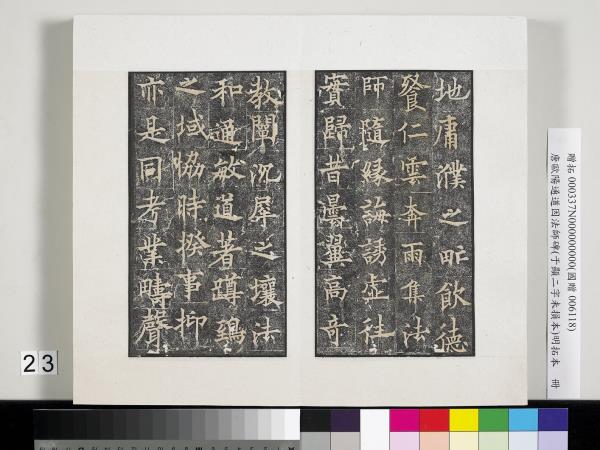 地庸濮之甿飲德
餐仁雲奔雨集法
師隨緣誨誘虛往
實歸昔曇翼高奇
教闡沉犀之壤法
和通敏道著蹲鴟
之域恊時揆事抑
亦是同考業疇聲
贈拓 000337N000000000(國贈 006118)
唐歐陽通道因法師碑(于顯二字未損本)明拓本 冊
23